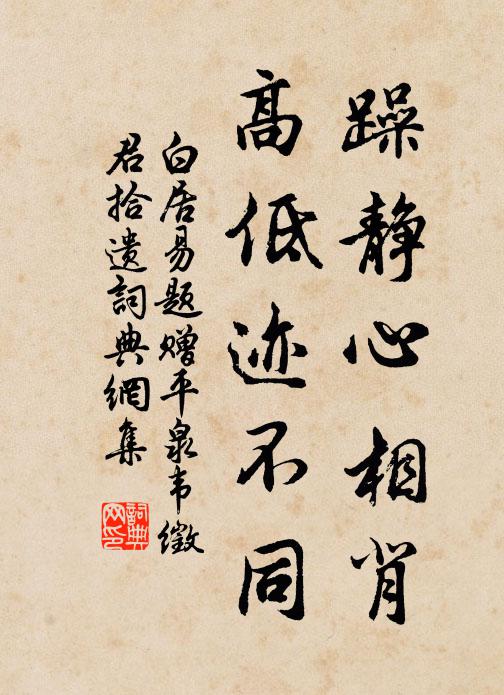 躁静心相背
高低迹不同
白居易题赠平泉韦徵
君拾遗詞典網集
詞典
网印